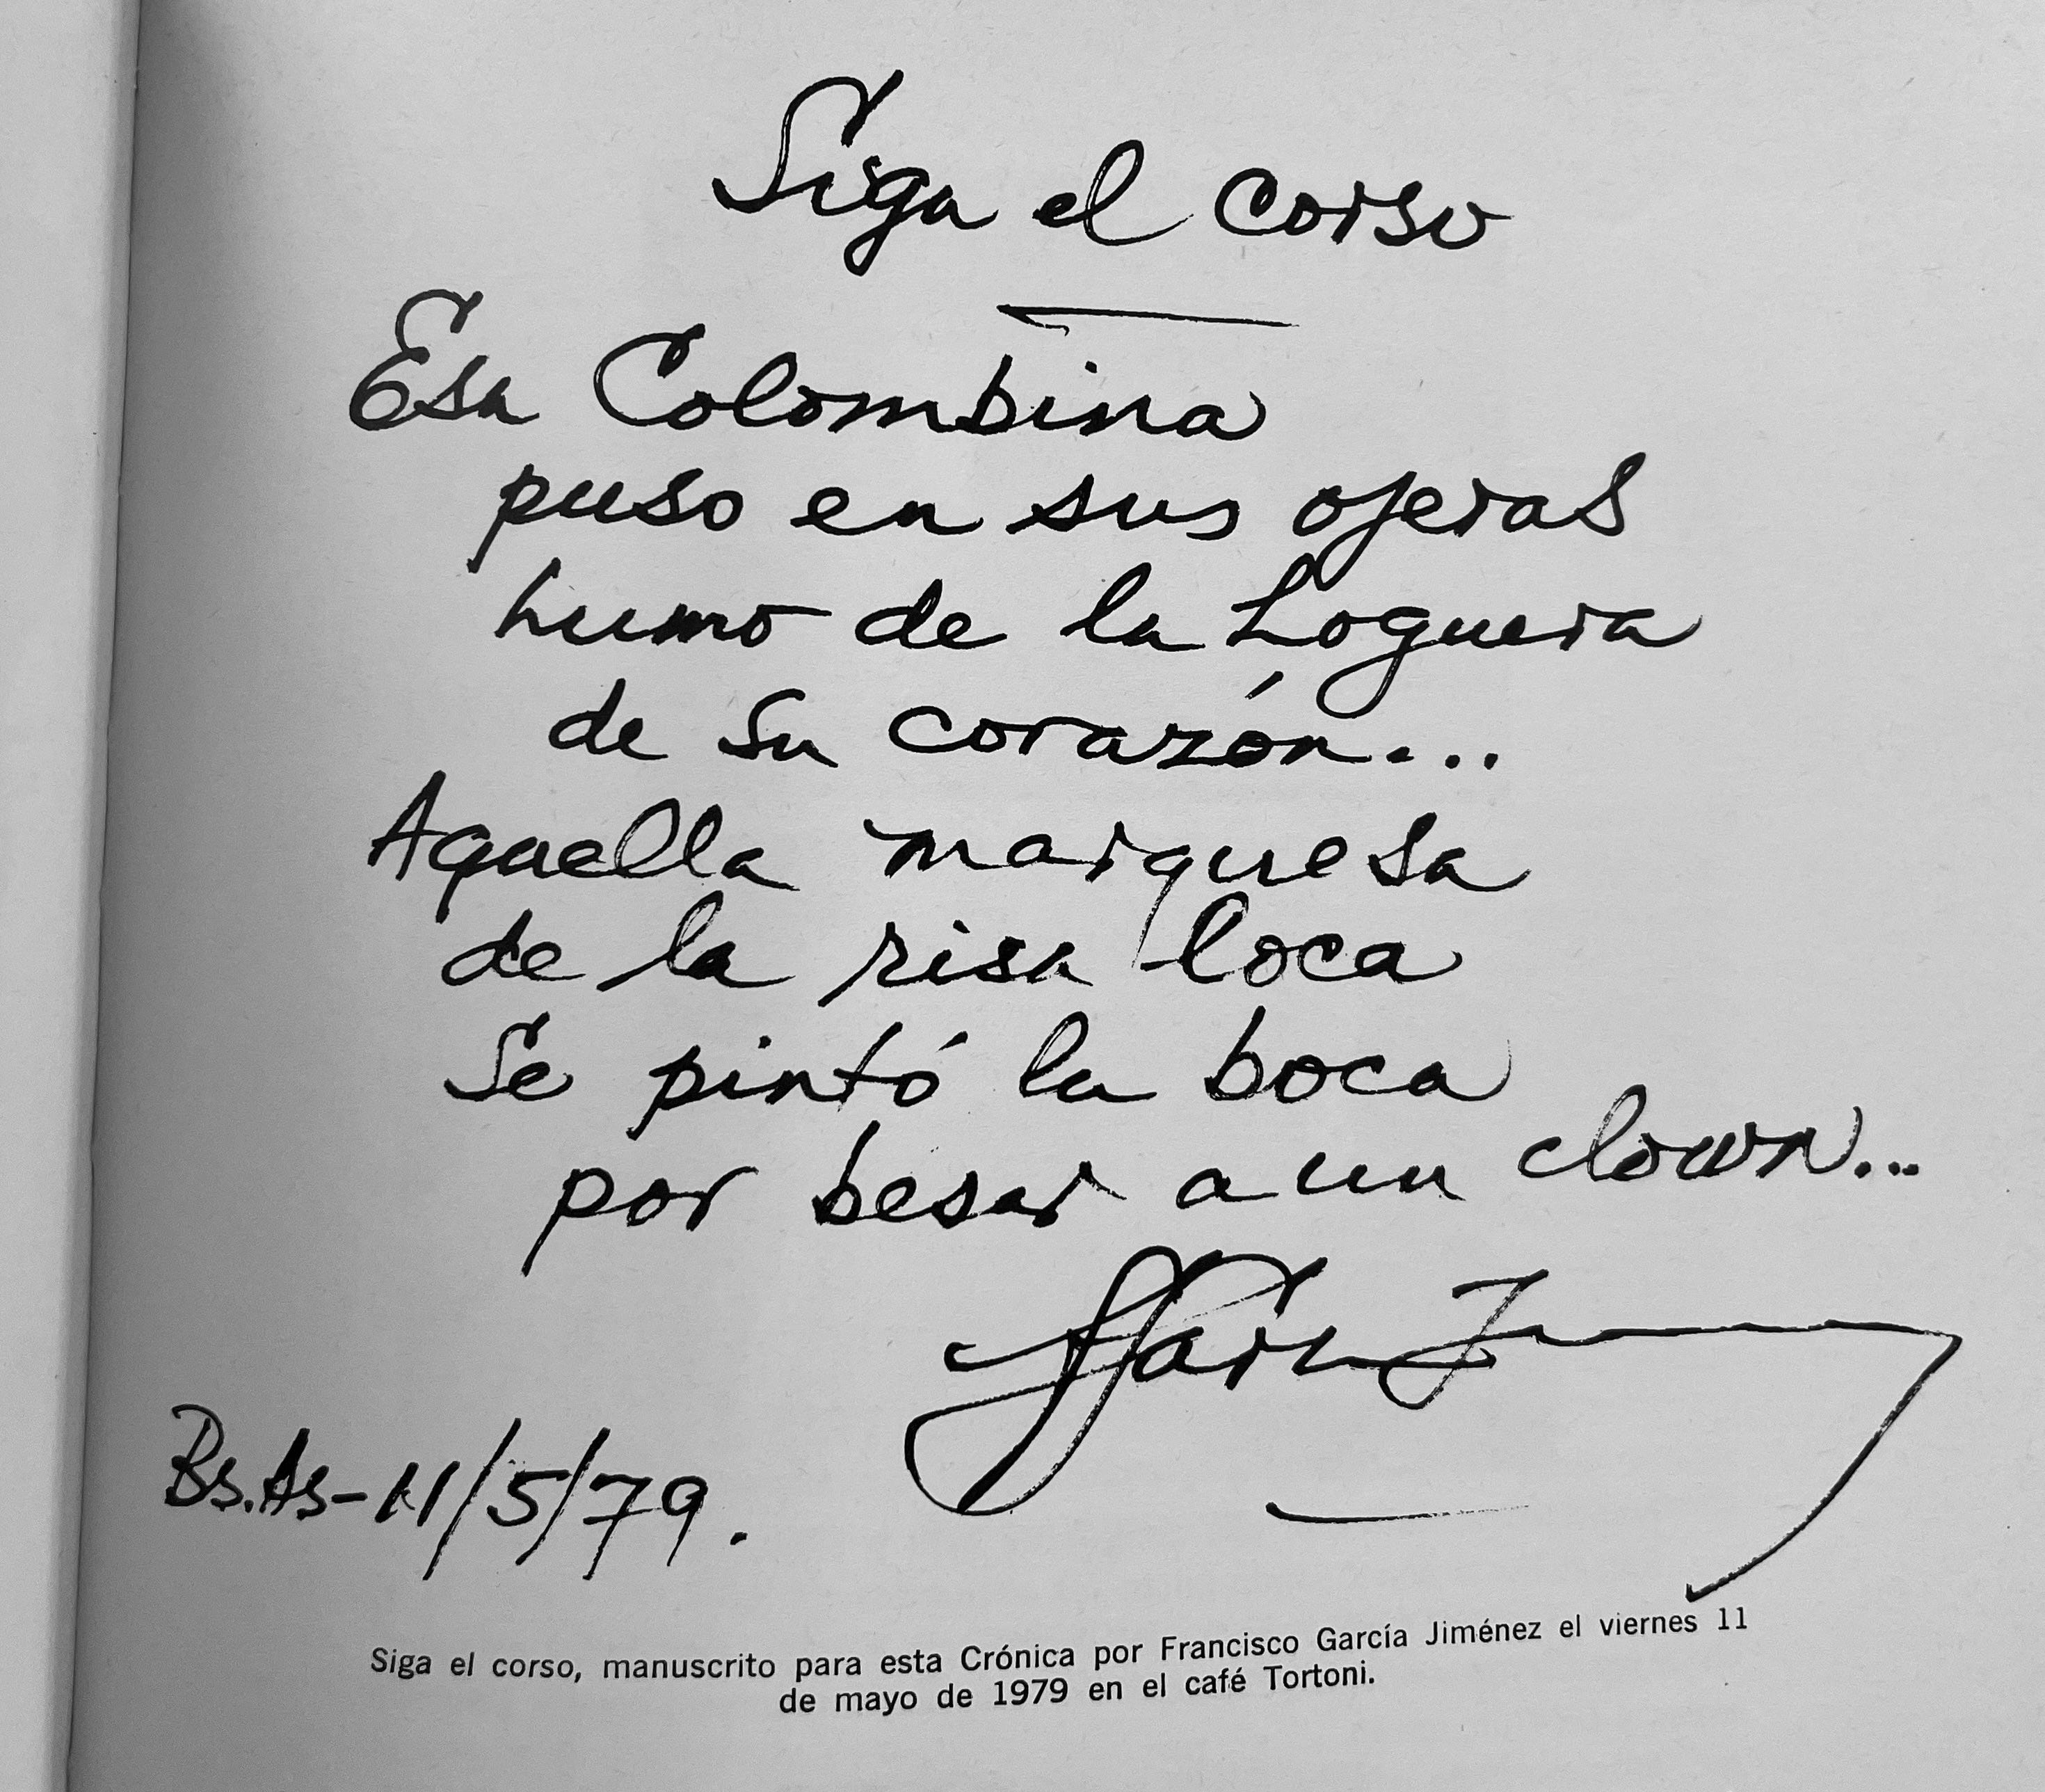 Siga el corso
Esa Colombina
puso en sus ojeras
humo de la hoguera
de su corazón...
Aquella marquesa
de la risa loca
Se pintó la boca
por besar a un clown...
Bs.As-11/5/79.
Siga el corso, manuscrito para esta Crónica por Francisco García Jiménez el viernes 11
de mayo de 1979 en el café Tortoni.